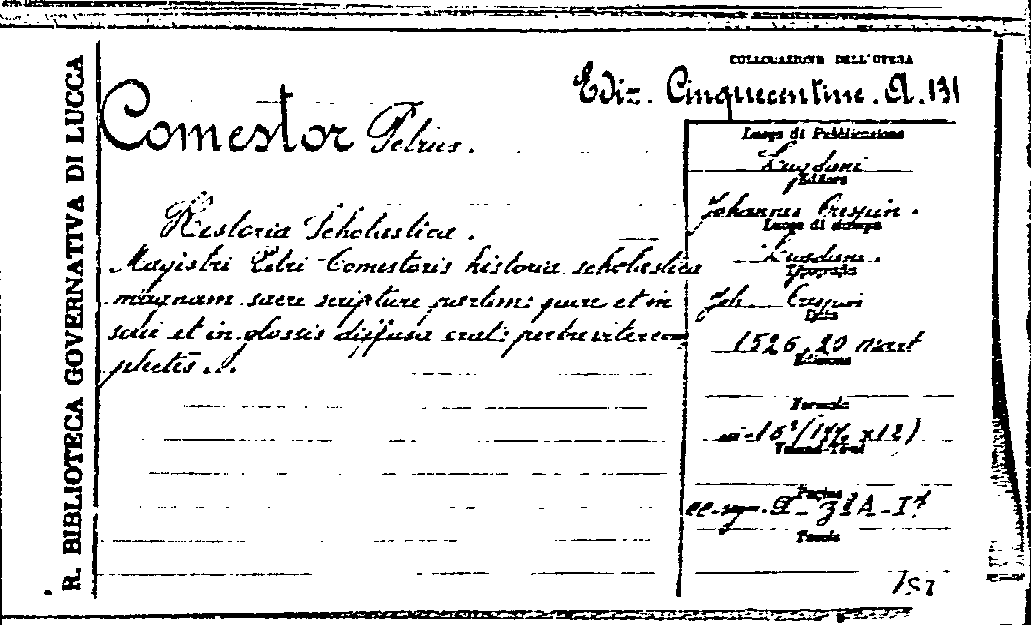 R. BIBLIOTECA GOVERNATIVA DI LUCCA
COLLOCAZIONE DELL'OPERA
Ediz. Cinquecentine. A. 131
Comestor Petrus.
Historia Scholastica.
Magistri Petri Comestoris historia scholastica
magnam sacre scripture partem: quae et in
serie et in glossis diffusa erat: perbreviter com
plectēs...
Luogo di Pubblicazione
Lugduni
Editore
Johannes Crespin.
Luogo di stampa
Lugduni.
Tipografo
Joh. Crespin
Data
1526, 20 mart
Edizione
Formato
in-16°(17½ x12)
Volumi-Tomi
Pagine
cc. segn. A - z 8 A - I 8
Tavole
157